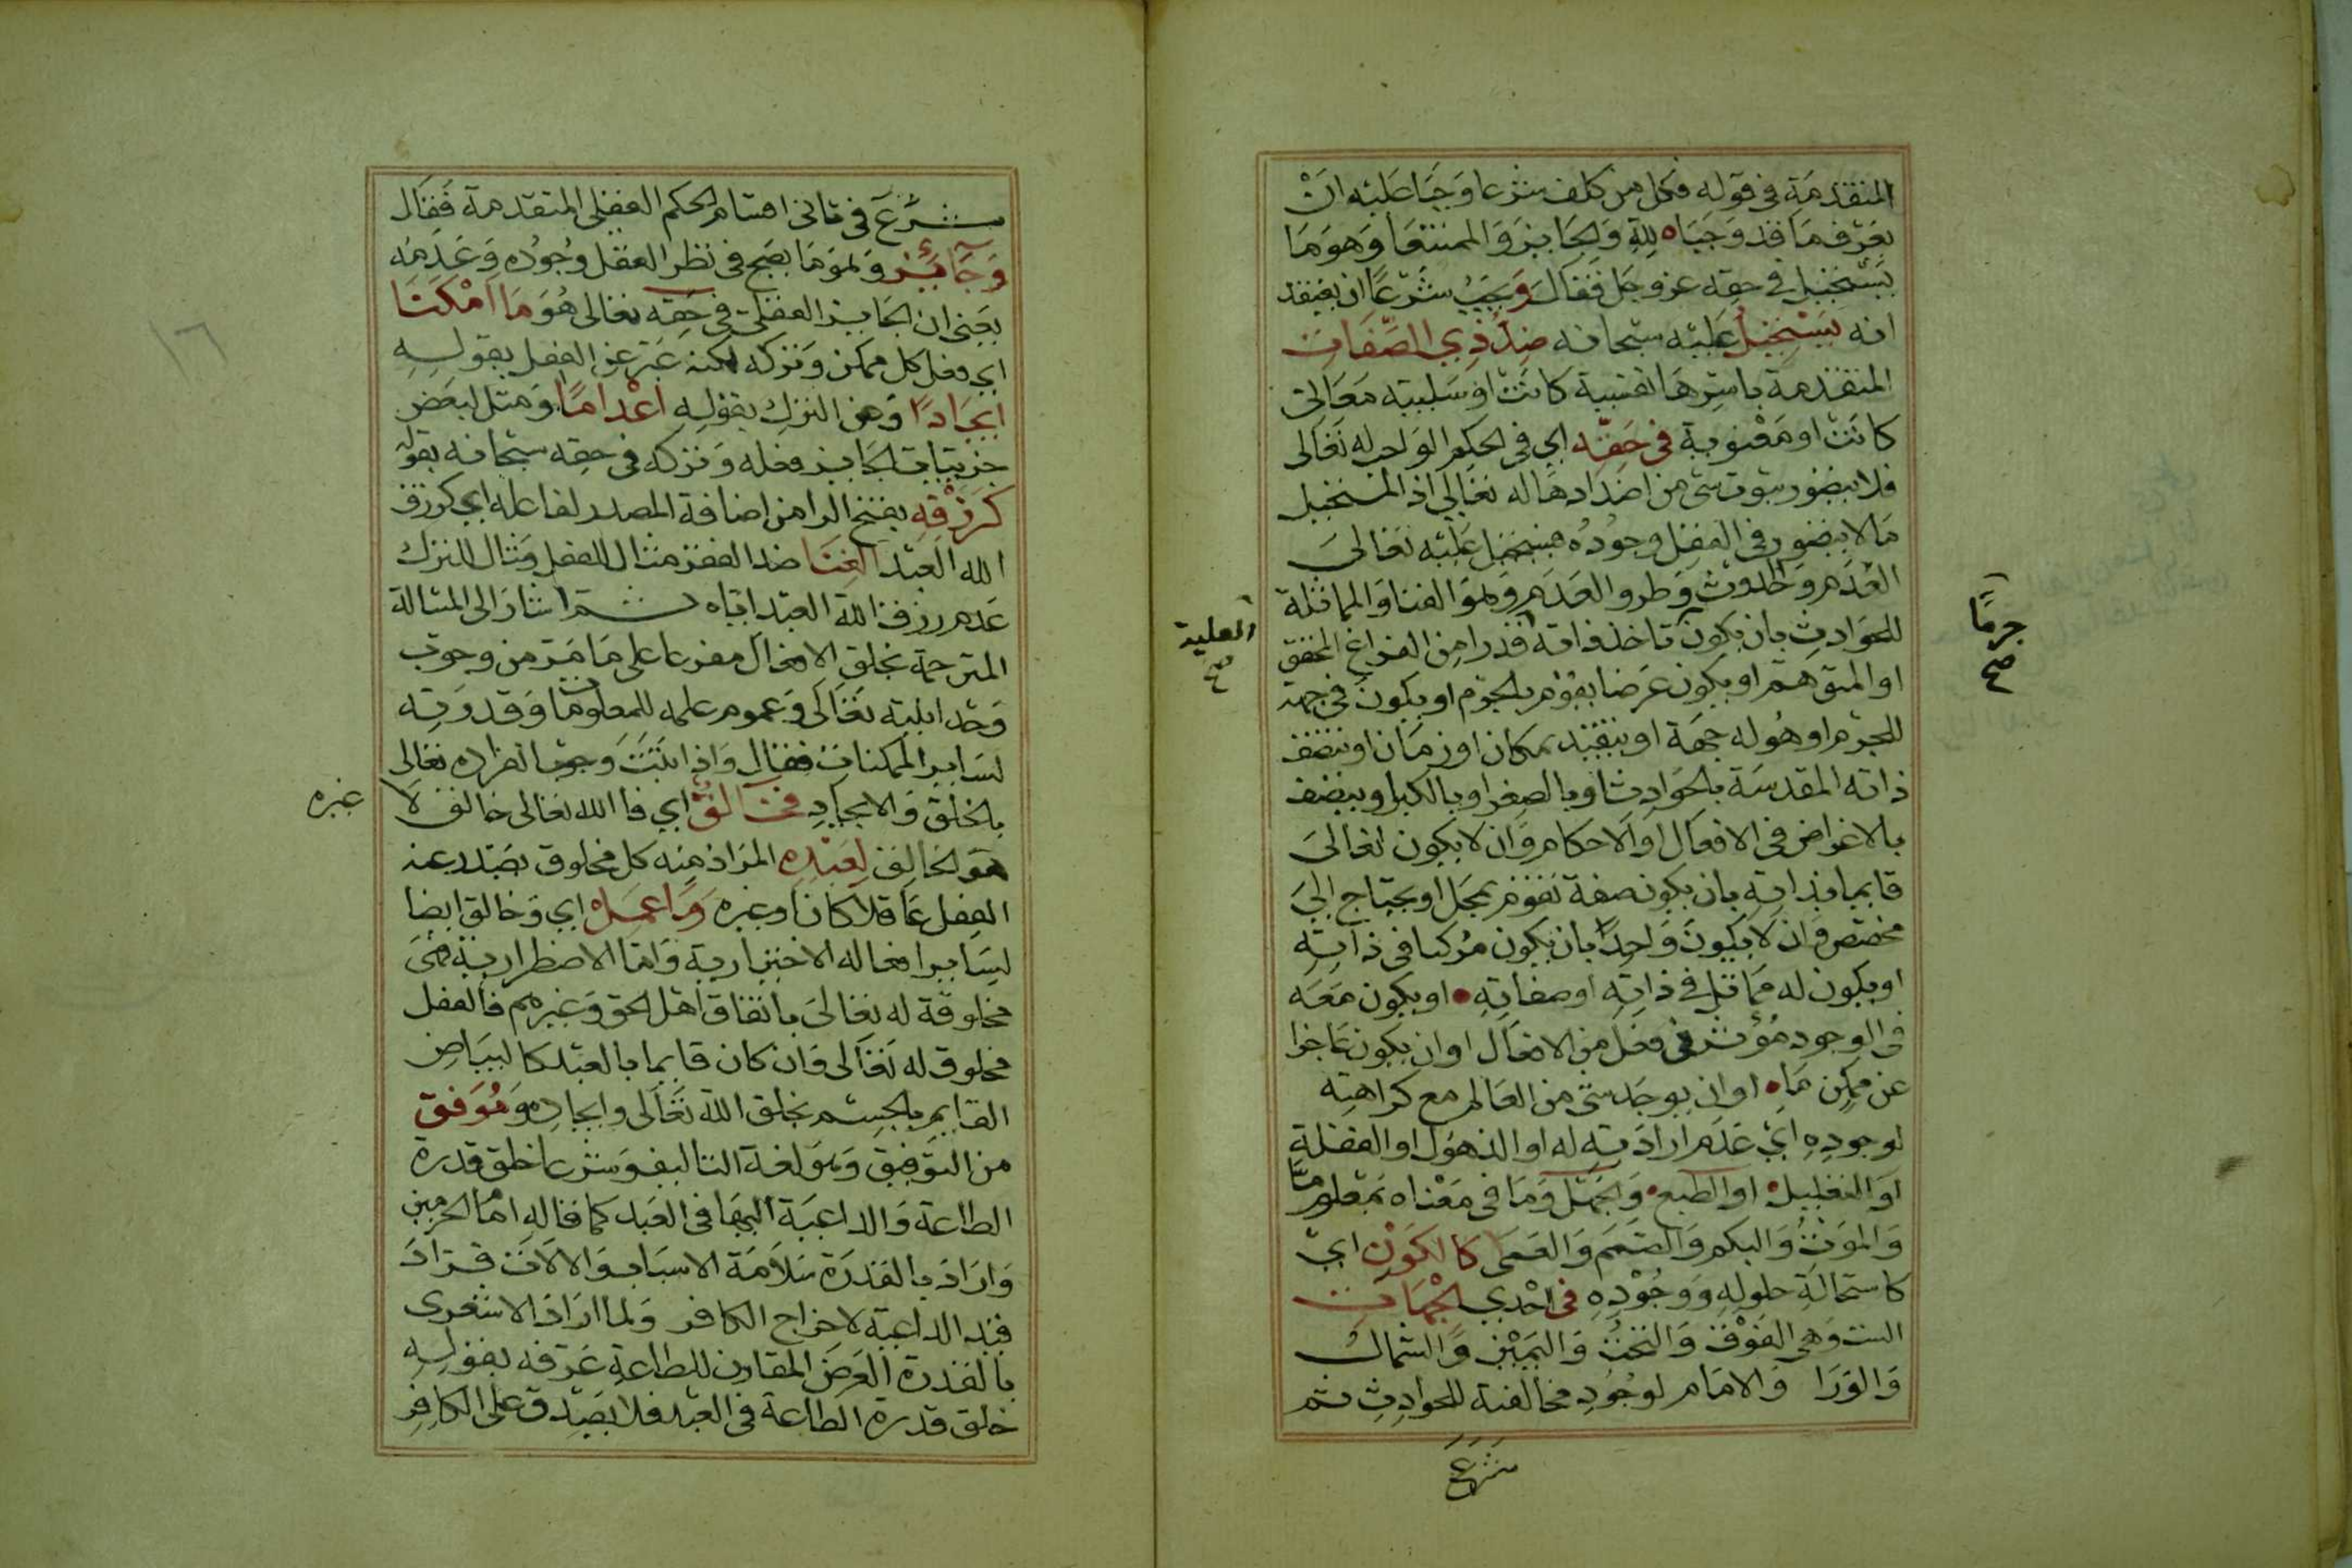 المتقدمة في قوله فكل من كلف شرعا وجبا عليه ان
يعرف ما قد وجبا لله والجايز والممتنعا وهو ما
يستحيل في حقه عز وجل فقال ويجب شرعا ان يعتقد
انه يستحيل عليه سبحانه ضد ذي الصفات
المتقدمة باسرها نفسية كانت او سلبية معاني
كانت او معنوية في حقه اي في الحكم الواجب له تعالى
فلا يتصور ثبوت شي من اضدادها له تعالى اذ المستحيل
ما لا يتصور في العقل وجوده فيستحيل عليه تعالى
العدم والحدوث وطرو العدم وهو الفنا والمماثلة
للحوادث بان يكون تاخذ ذاته قدرا من الفراغ المحقق
او المتوهم او يكون عرضا يقوم بالجرم او يكون في جهة
للجرم او هو له جهة او يتقيد بمكان او زمان او تتصف
ذاته المقدسة بالحوادث او بالصغر او بالكبر او يتصف
بالاغراض في الافعال او الاحكام وان لا يكون تعالى
قايما بذاته بان يكون صفة تقوم بمحل او يحتاج الى
مخصص وان لا يكون واحدا بان يكون مركبا في ذاته
او يكون له مماثل في ذاته او صفاته او يكون معه
في الوجود مؤثر في فعل من الافعال او ان يكون عاجزا
عن ممكن ما او ان يوجد شي من العالم مع كراهته
لوجوده اي عدم ارادته له او الذهول او الغفلة
او التعليل او الطبع والجهل وما في معناه بمعلوم ما
والموت والبكم والصمم والعمى كالكون اي
كاستحالة حلوله ووجوده في احدي الجهات
الست وهي الفوق والتحت واليمين والشمال
والورا والامام لوجود مخالفته للحوادث ثم
شرع
جرما
صح
العلية
صح
شرع في ثاني اقسام الحكم العقلي المتقدمة فقال
وجائز وهو ما يصح في نظر العقل وجوده وعدمه
يعني ان الجايز العقلي في حقه تعالى هو ما امكنا
اي فعل كل ممكن وتركه لكنه عبر عن الفعل بقوله
ايجادا وعن الترك بقوله اعداما ومثل لبعض
جزييات الجايز فعله وتركه في حقه سبحانه بقوله
كرزقه بفتح الرا من اضافة المصدر لفاعله اي كرزق
الله العبد الغنا ضد الفقر مثال للفعل ومثال للترك
عدم رزق الله العبد اياه ثم اشار الى المسالة
المترجمة بخلق الافعال مفرعا على ما مر من وجوب
وحدانيته تعالى وعموم علمه للمعلومات وقدرته
لساير الممكنات فقال واذا ثبت وجوب انفراده تعالى
بالخلق والايجاد فخالق اي فالله تعالى خالق لا
غيره
هو الخالق لعبده المراد منه كل مخلوق يصدر عنه
الفعل عاقلا كان او غيره وما عمل اي وخالق ايضا
لساير افعاله الاختيارية واما الاضطرارية فهي
مخلوقة له تعالى باتفاق اهل الحق وغيرهم فالفعل
مخلوق له تعالى وان كان قايما بالعبد كالبياض
القايم بالجسم بخلق الله تعالى وايجاده وموفق
من التوفيق وهو لغة التاليف وشرعا خلق قدرة
الطاعة والداعية اليها في العبد كما قاله امام الحرمين
واراد بالقدرة سلامة الاسباب والالات فزاد
قيد الداعية لاخراج الكافر ولما اراد الاشعري
بالقدرة العرض المقارن للطاعة عرفه بقوله
خلق قدرة الطاعة في العبد فلا يصدق على الكافر
١٦